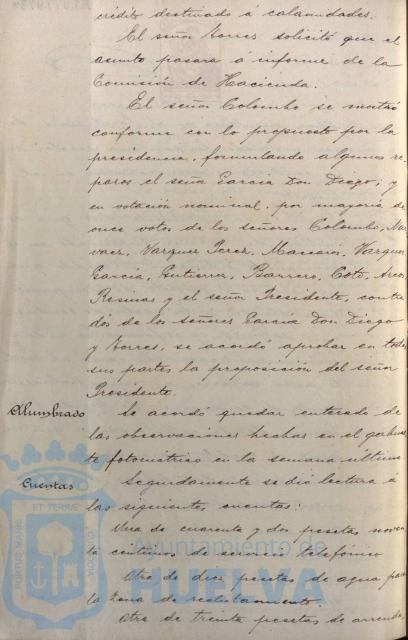 crédito destinado á calamidades.
El señor Torres solicitó que el
asunto pasara á informe de la
Comisión de Hacienda.
El señor Colombo se mostró
conforme con lo propuesto por la
presidencia, formulando algunos re-
paros el señor García Don Diego; y
en votación nominal, por mayoría de
once votos de los señores Colombo, Nar
vaez, Vazquez Perez, Mascarós, Vazquez
García, Gutierrez, Barrero, Coto, Arcos
Resinas y el señor Presidente, contra
dos de los señores García Don Diego
y Torres, se acordó aprobar en todas
sus partes la proposición del señor
Presidente.
Alumbrado
Se acordó quedar enterado de
las observaciones hechas en el gabine
te fotométrico en la semana última
Cuentas
Seguidamente se dió lectura á
las siguientes cuentas:
Una de cuarenta y dos pesetas noven
ta centimos de servicio telefónico
Otra de diez pesetas de agua para
la Zona de reclutamiento.
Otra de treinta pesetas de arrenda
Ayuntamiento de
HUELVA
ET TERRÆ
PORTUS MARIS
CUSTODIA